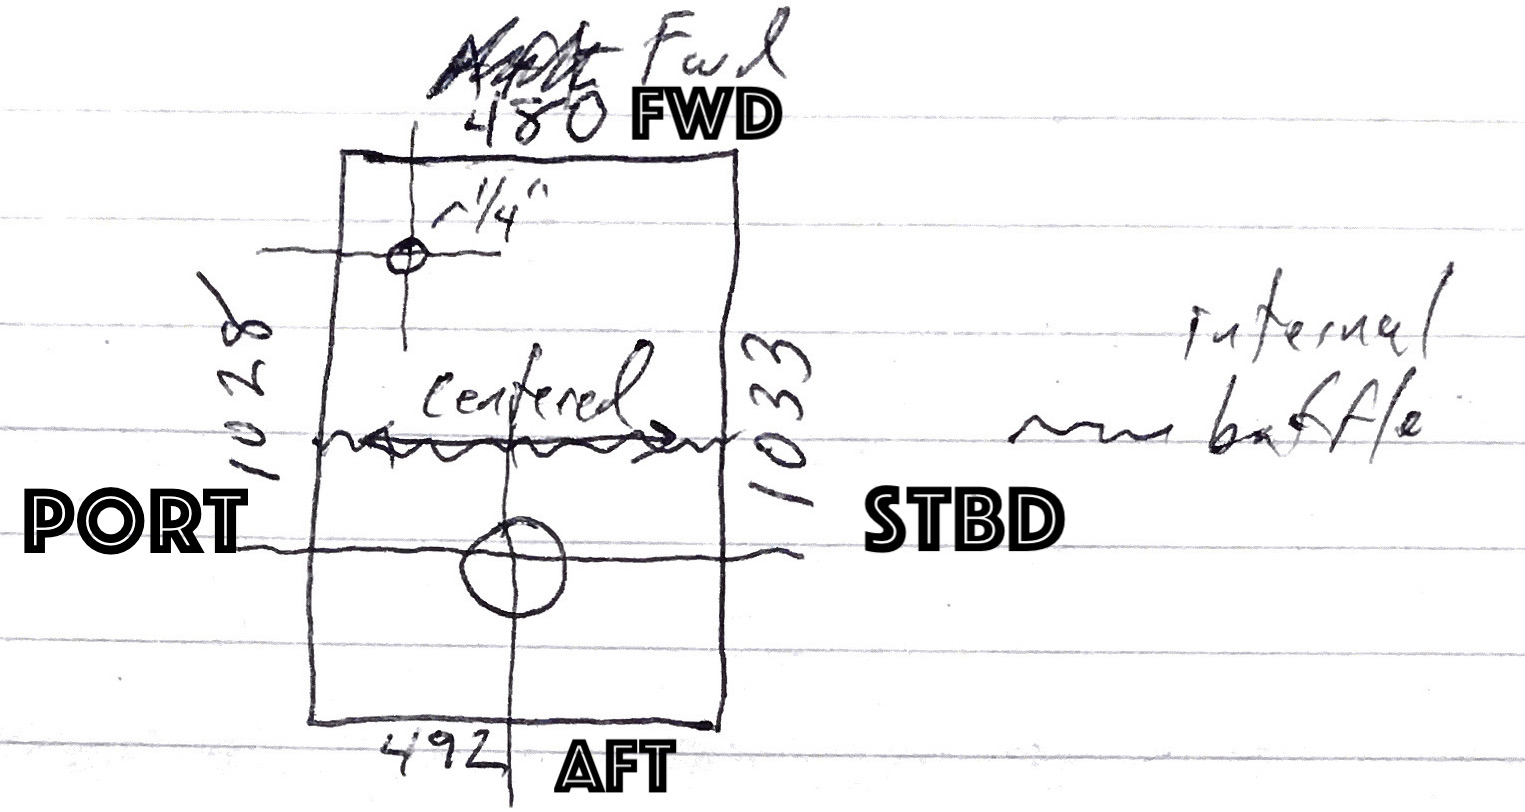 Fwd
480 FWD
~1/4"
1028
centered
1033
internal
baffle
PORT
STBD
492
AFT